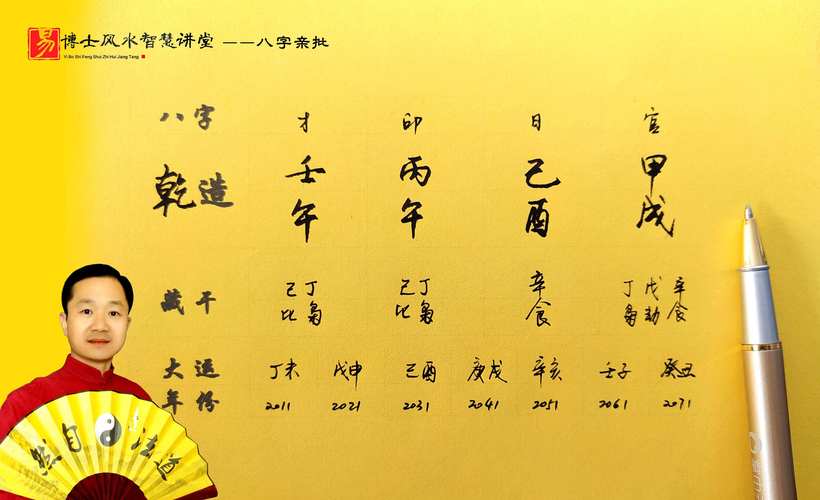 易 博士风水智慧讲堂 ——八字亲批
Yi Bo Shi Feng Shui Zhi Hui Jiang Tang
八字 才 印 日 官
乾造 壬 丙 己 甲
午 午 酉 戌
藏干 己丁 己丁 辛 丁戊辛
比枭 比枭 食 枭劫食
大运 丁未 戊申 己酉 庚戌 辛亥 壬子 癸丑
年份 2011 2021 2031 2041 2051 2061 2071
然自法道